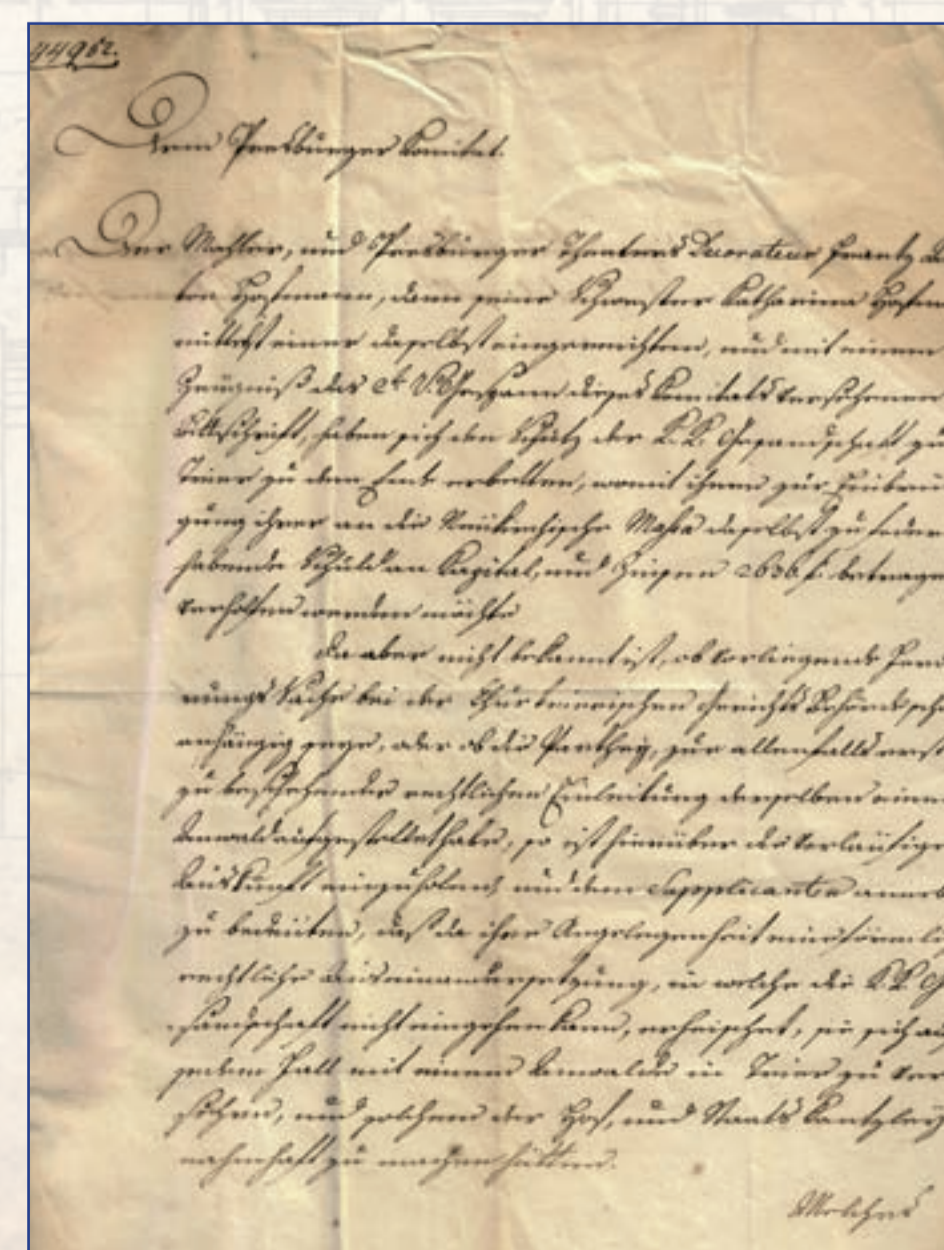 44962.
Dem Presburger Komitat.
Der Mahler, und Presburger Theaters Decorateur Frantz
Hofmann, dann seine Schwester Katharina Hofm
mittelst einer daselbst eingereichten, und mit einem
Zeugniß des Gespann dieses Komitats versehenen
Bittschrift, haben sich den Schutz der K. K. Gesandschaft zu
Trier zu dem Ende erbetten, womit ihnen zur Einbrin
gung ihrer an die Massa daselbst zu fodern
habende Schuld an Kapital, und Zinsen 2636 f. betragen
verholfen werden möchte
Da aber nicht bekannt ist, ob vorliegende Fode
rungs Sache bei der Churtrierischen Gerichts Behörde sch
anhängig seye, oder ob die Parthey, zur allenfalls erst
zu beschehender rechtlichen Einleitung derselben einen
Anwald aufgestellet habe, so ist hierüber die vorläufige
Auskunft einzuholen, und dem Supplicanten anneb
zu bedeuten, daß da ihre Angelegenheit eine förmli
rechtliche Auseinandersetzung, in welche die K. K. G
sandschaft nicht eingehen kann, erheischet, sie sich au
jeden Fall mit einem Anwalde in Trier zu ver
sehen, und solchen der Hof, und Staats Kantzley
nahmhaft zu machen hätten.
Welches